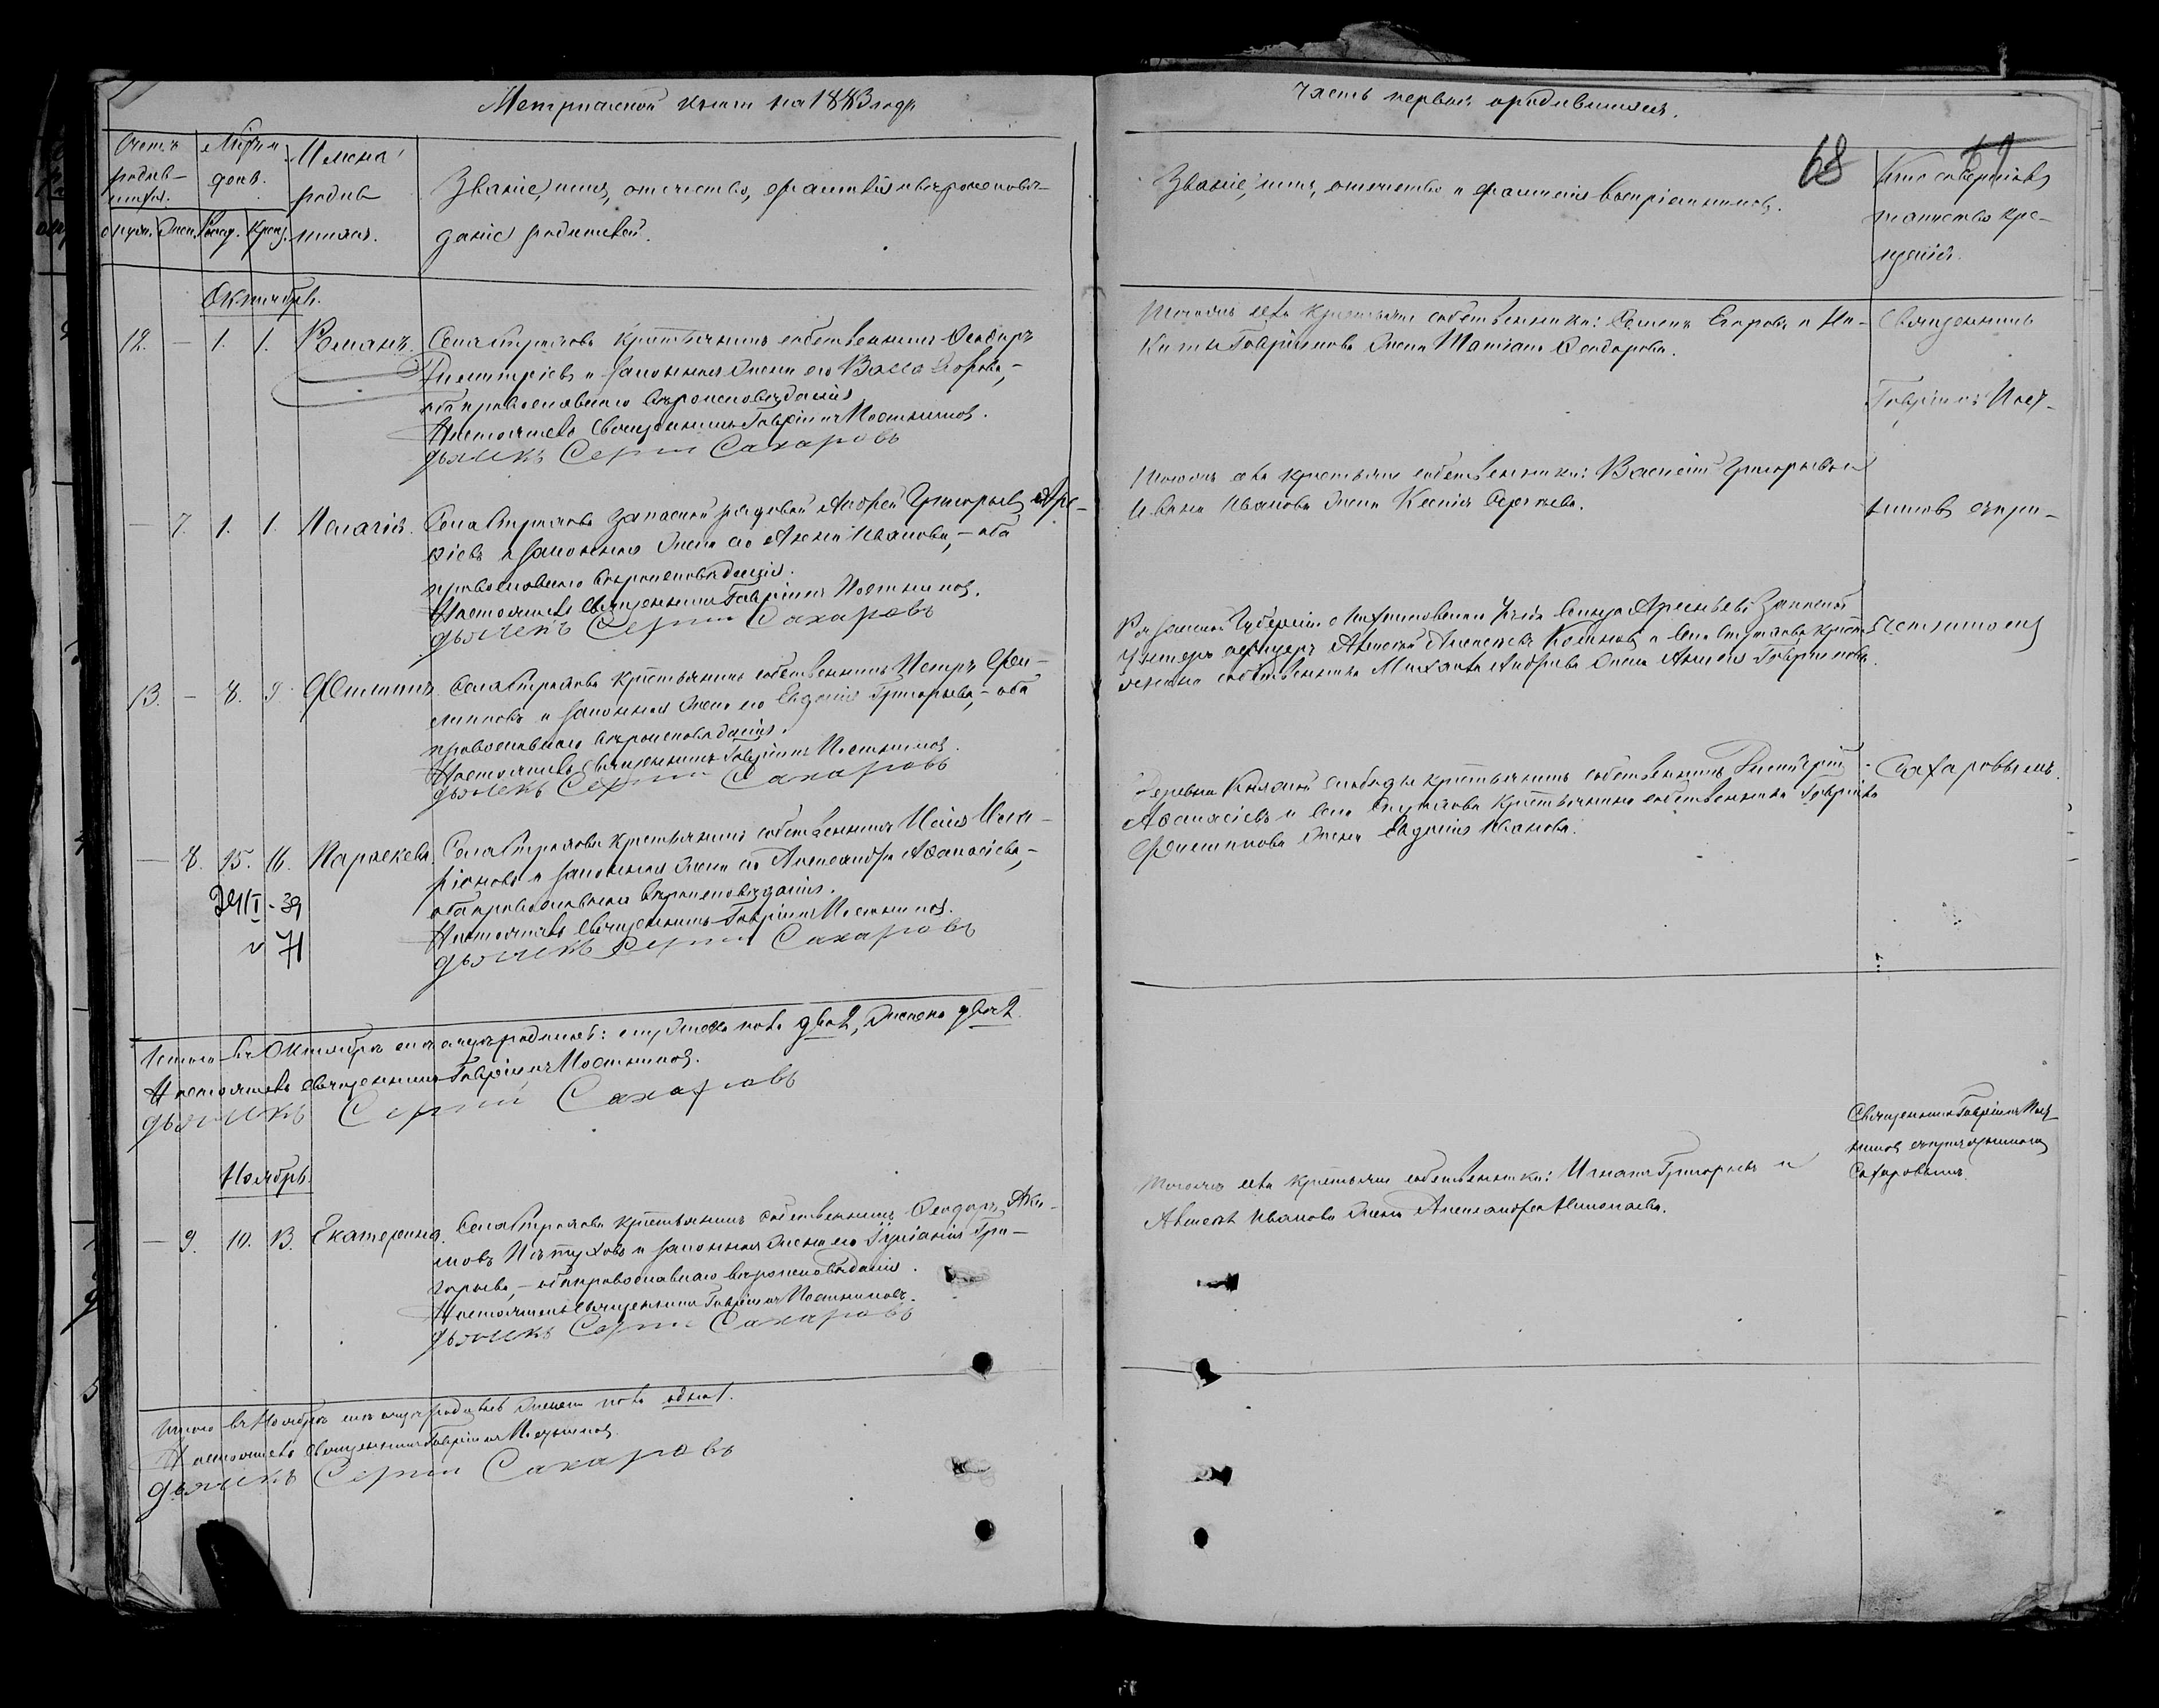 Метрической книги на 1883 годъ
Счетъ родив-шихся.
Мѣсяцъ и день.
Имена родив-шихся.
Званіе, имя, отчество, фамилія и вѣроисповѣ-
даніе родителей.
муж. жен. Рожд. Крещ.
Октябрь.
12. — 1. 1. Романъ. Села крестьянинъ собственникъ Ѳеодоръ
Димитріевъ и законная жена его Васса
оба православнаго вѣроисповѣданія
Настоятель Священникъ Гавріилъ Постниковъ.
дьячекъ Сергій Сахаровъ
— 7. 1. 1. Пелагія. Села запасной рядовой Андрей Григорьевъ
и законная жена его Анна Иванова, — оба
православнаго вѣроисповѣданія.
Настоятель Священникъ Гавріилъ Постниковъ.
дьячекъ Сергій Сахаровъ
13. — 8. 9. Филиппъ. Села крестьянинъ собственникъ Петръ Фи-
липповъ и законная жена его Евдокія Григорьева, — оба
православнаго вѣроисповѣданія.
Настоятель Священникъ Гавріилъ Постниковъ.
дьячекъ Сергій Сахаровъ
— 8. 15. 16. Параскева. Села крестьянинъ собственникъ Исаія Ила-
ріоновъ и законная жена его Александра Аѳанасіева, —
оба православнаго вѣроисповѣданія.
Настоятель Священникъ Гавріилъ Постниковъ.
дьячекъ Сергій Сахаровъ
39
71
Итого въ Октябрѣ мѣсяцѣ родилось: мужеска пола два 2, женска двѣ 2.
Настоятель Священникъ Гавріилъ Постниковъ.
дьячекъ Сергій Сахаровъ
Ноябрь.
— 9. 10. 13. Екатерина. Села крестьянинъ собственникъ Ѳеодоръ Аки-
мовъ Пѣтуховъ и законная жена его Іуліанія Гри-
горьева, — оба православнаго вѣроисповѣданія.
Настоятель Священникъ Гавріилъ Постниковъ.
дьячекъ Сергій Сахаровъ
Итого въ Ноябрѣ мѣсяцѣ родилось женска пола одна 1.
Настоятель Священникъ Гавріилъ Постниковъ.
дьячекъ Сергій Сахаровъ
Часть первая о родившихся.
68
Званіе, имя, отчество и фамилія воспріемниковъ.
Кто совершалъ
таинство кре-
щенія.
Тогожъ села крестьяне собственники: Семенъ Егоровъ и Ни-
киты Гавріилова жена Татіана Ѳеодорова.
Священникъ
Гавріилъ Пост-
Тогожъ села крестьяне собственники: Василій Григорьевъ и
Ивана Иванова жена Ксенія Сергіева.
никовъ съ при-
Рязанской Губерніи Уѣзда Села Запасной
Унтеръ офицеръ Алексій Алексѣевъ и села крест-
янина собственника Михаила Андреева жена Анисія Гавріилова.
четникомъ
Деревни Княжой слободы крестьянинъ собственникъ Димитрій
Аѳанасіевъ и села крестьянина собственника Гавріила
Филиппова жена Евдокія Иванова.
Сахаровымъ.
Тогожъ села крестьяне собственники: Игнатъ Григорьевъ и
Алексѣя Иванова жена Александра Николаева.
Священникъ Гавріилъ Пост-
никовъ съ причетникомъ
Сахаровымъ.